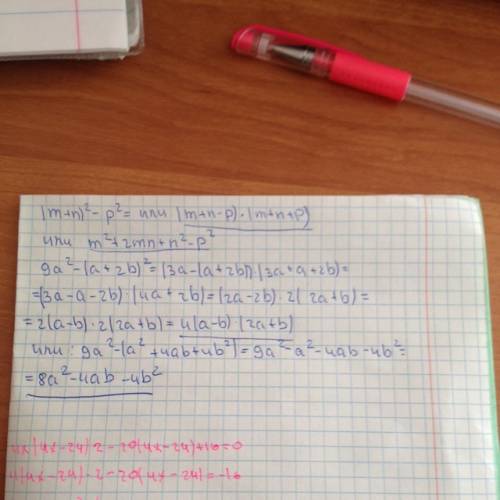 (m+n)²-p²= или (m+n-p)·(m+n+p)
или m²+2mn+n²-p²
9a²-(a+2b)²=(3a-(a+2b))·(3a+a+2b)=
=(3a-a-2b)·(4a+2b)=(2a-2b)·2(2a+b)=
=2(a-b)·2(2a+b)=4(a-b)(2a+b)
или: 9a²-(a²+4ab+4b²)=9a²-a²-4ab-4b²=
=8a²-4ab-4b²
(4x-24)·2-20(4x-24)+16=0
(4x-24)-2=20(4x-24)=-16